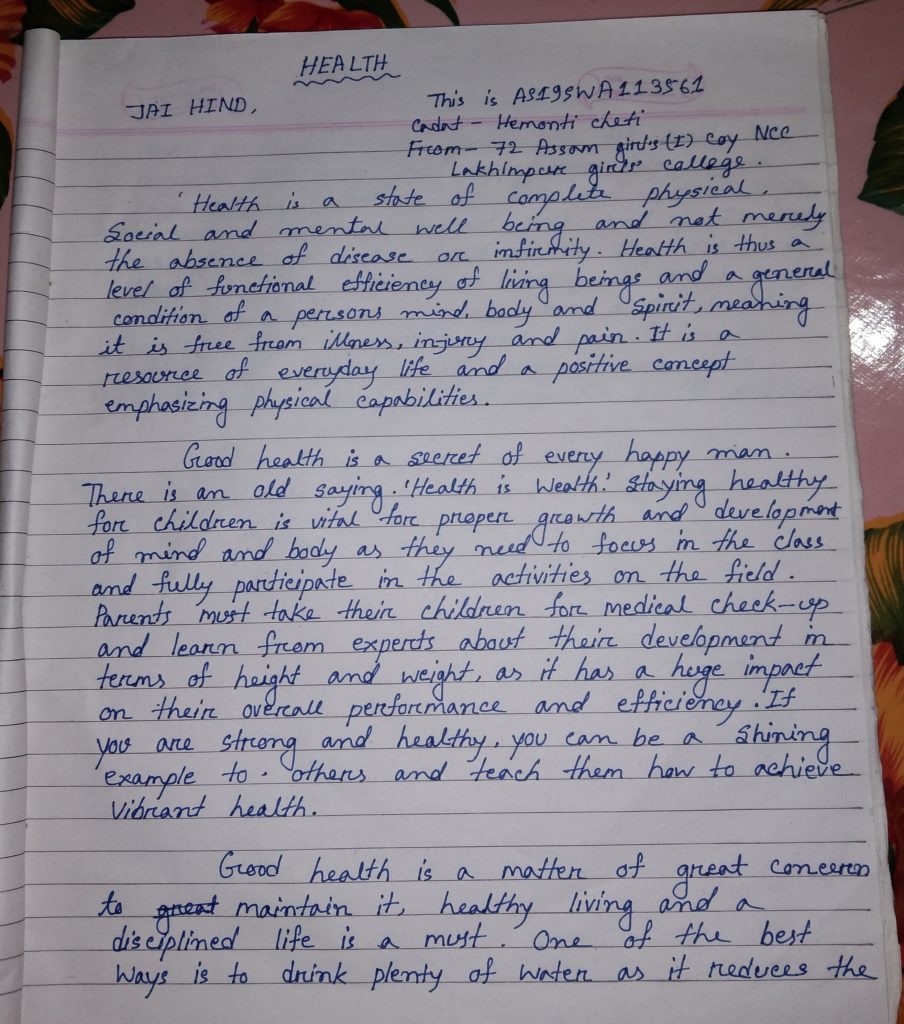 HEALTH
JAI HIND,
This is AS19SWA113561
Cadat - Hemonti cheti
From - 72 Assam girl's (I) Coy NCC
Lakhimpur girls' college.
'Health is a state of complete physical.
Social and mental well being and not merely
the absence of disease or infirmity. Health is thus a
level of functional efficiency of living beings and a general
condition of a persons mind, body and Spirit, meaning
it is free from illness, injury and pain. It is a
resource of everyday life and a positive concept
emphasizing physical capabilities.
Good health is a secret of every happy man.
There is an old saying. 'Health is Wealth.' Staying healthy
for children is vital for proper growth and development
of mind and body as they need to focus in the class
and fully participate in the activities on the field.
Parents must take their children for medical check-up
and learn from experts about their development in
terms of height and weight, as it has a huge impact
on their overall performance and efficiency. If
you are strong and healthy, you can be a Shining
example to. others and teach them how to achieve
Vibrant health.
Good health is a matter of great concern
to great maintain it, healthy living and a
disciplined life is a must. One of the best
Ways is to drink plenty of water as it reduces the